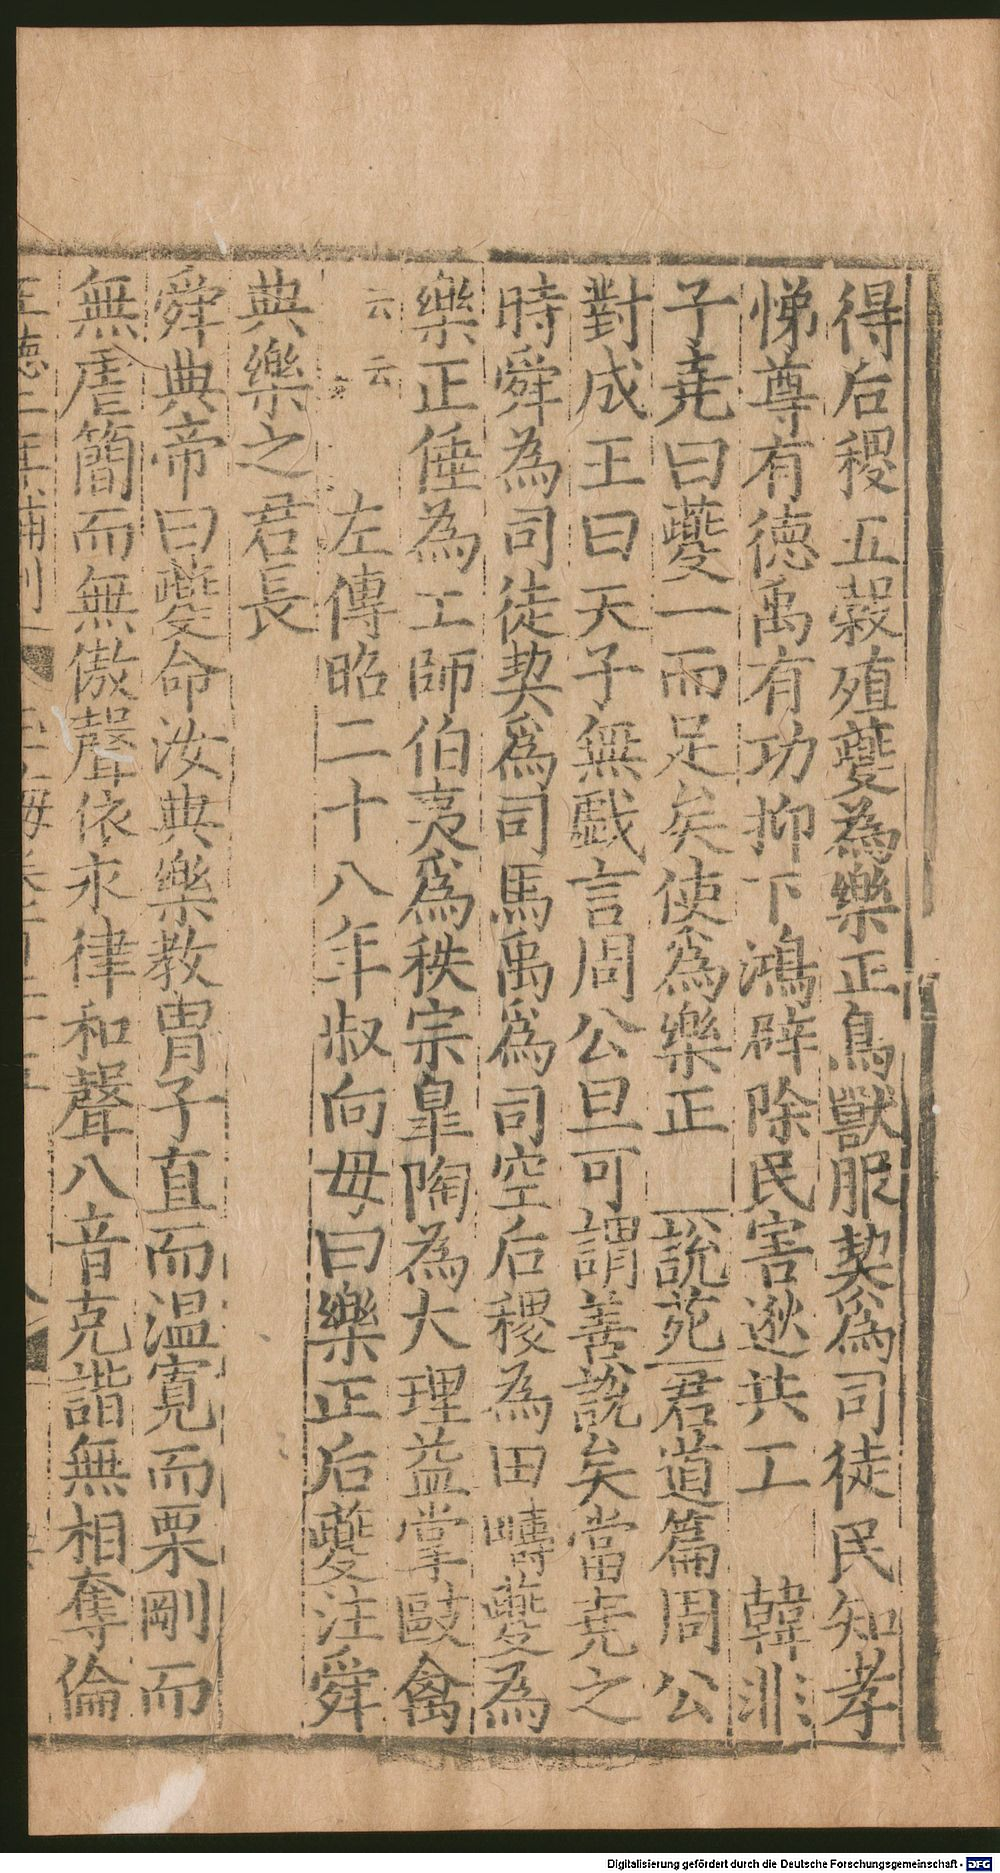 得后稷五穀殖夔為樂正鳥獸服契爲司徒民知孝
悌尊有德禹有功抑下鴻辟除民害逖共工　韓非
子堯曰夔一而足矣使爲樂正　說苑君道篇周公
對成王曰天子無戲言周公旦可謂善說矣當堯之
時舜為司徒契爲司馬禹爲司空后稷為田疇夔為
樂正倕為工師伯夷爲秩宗皐陶為大理益掌敺禽
云云　左傳昭二十八年叔向毋曰樂正后夔注舜
典樂之君長
舜典帝曰夔命汝典樂教胄子直而温寬而栗剛而
無虐簡而無傲聲依永律和聲八音克諧無相奪倫
正德二年補刊
Digitalisierung gefördert durch die Deutsche Forschungsgemeinschaft - DFG